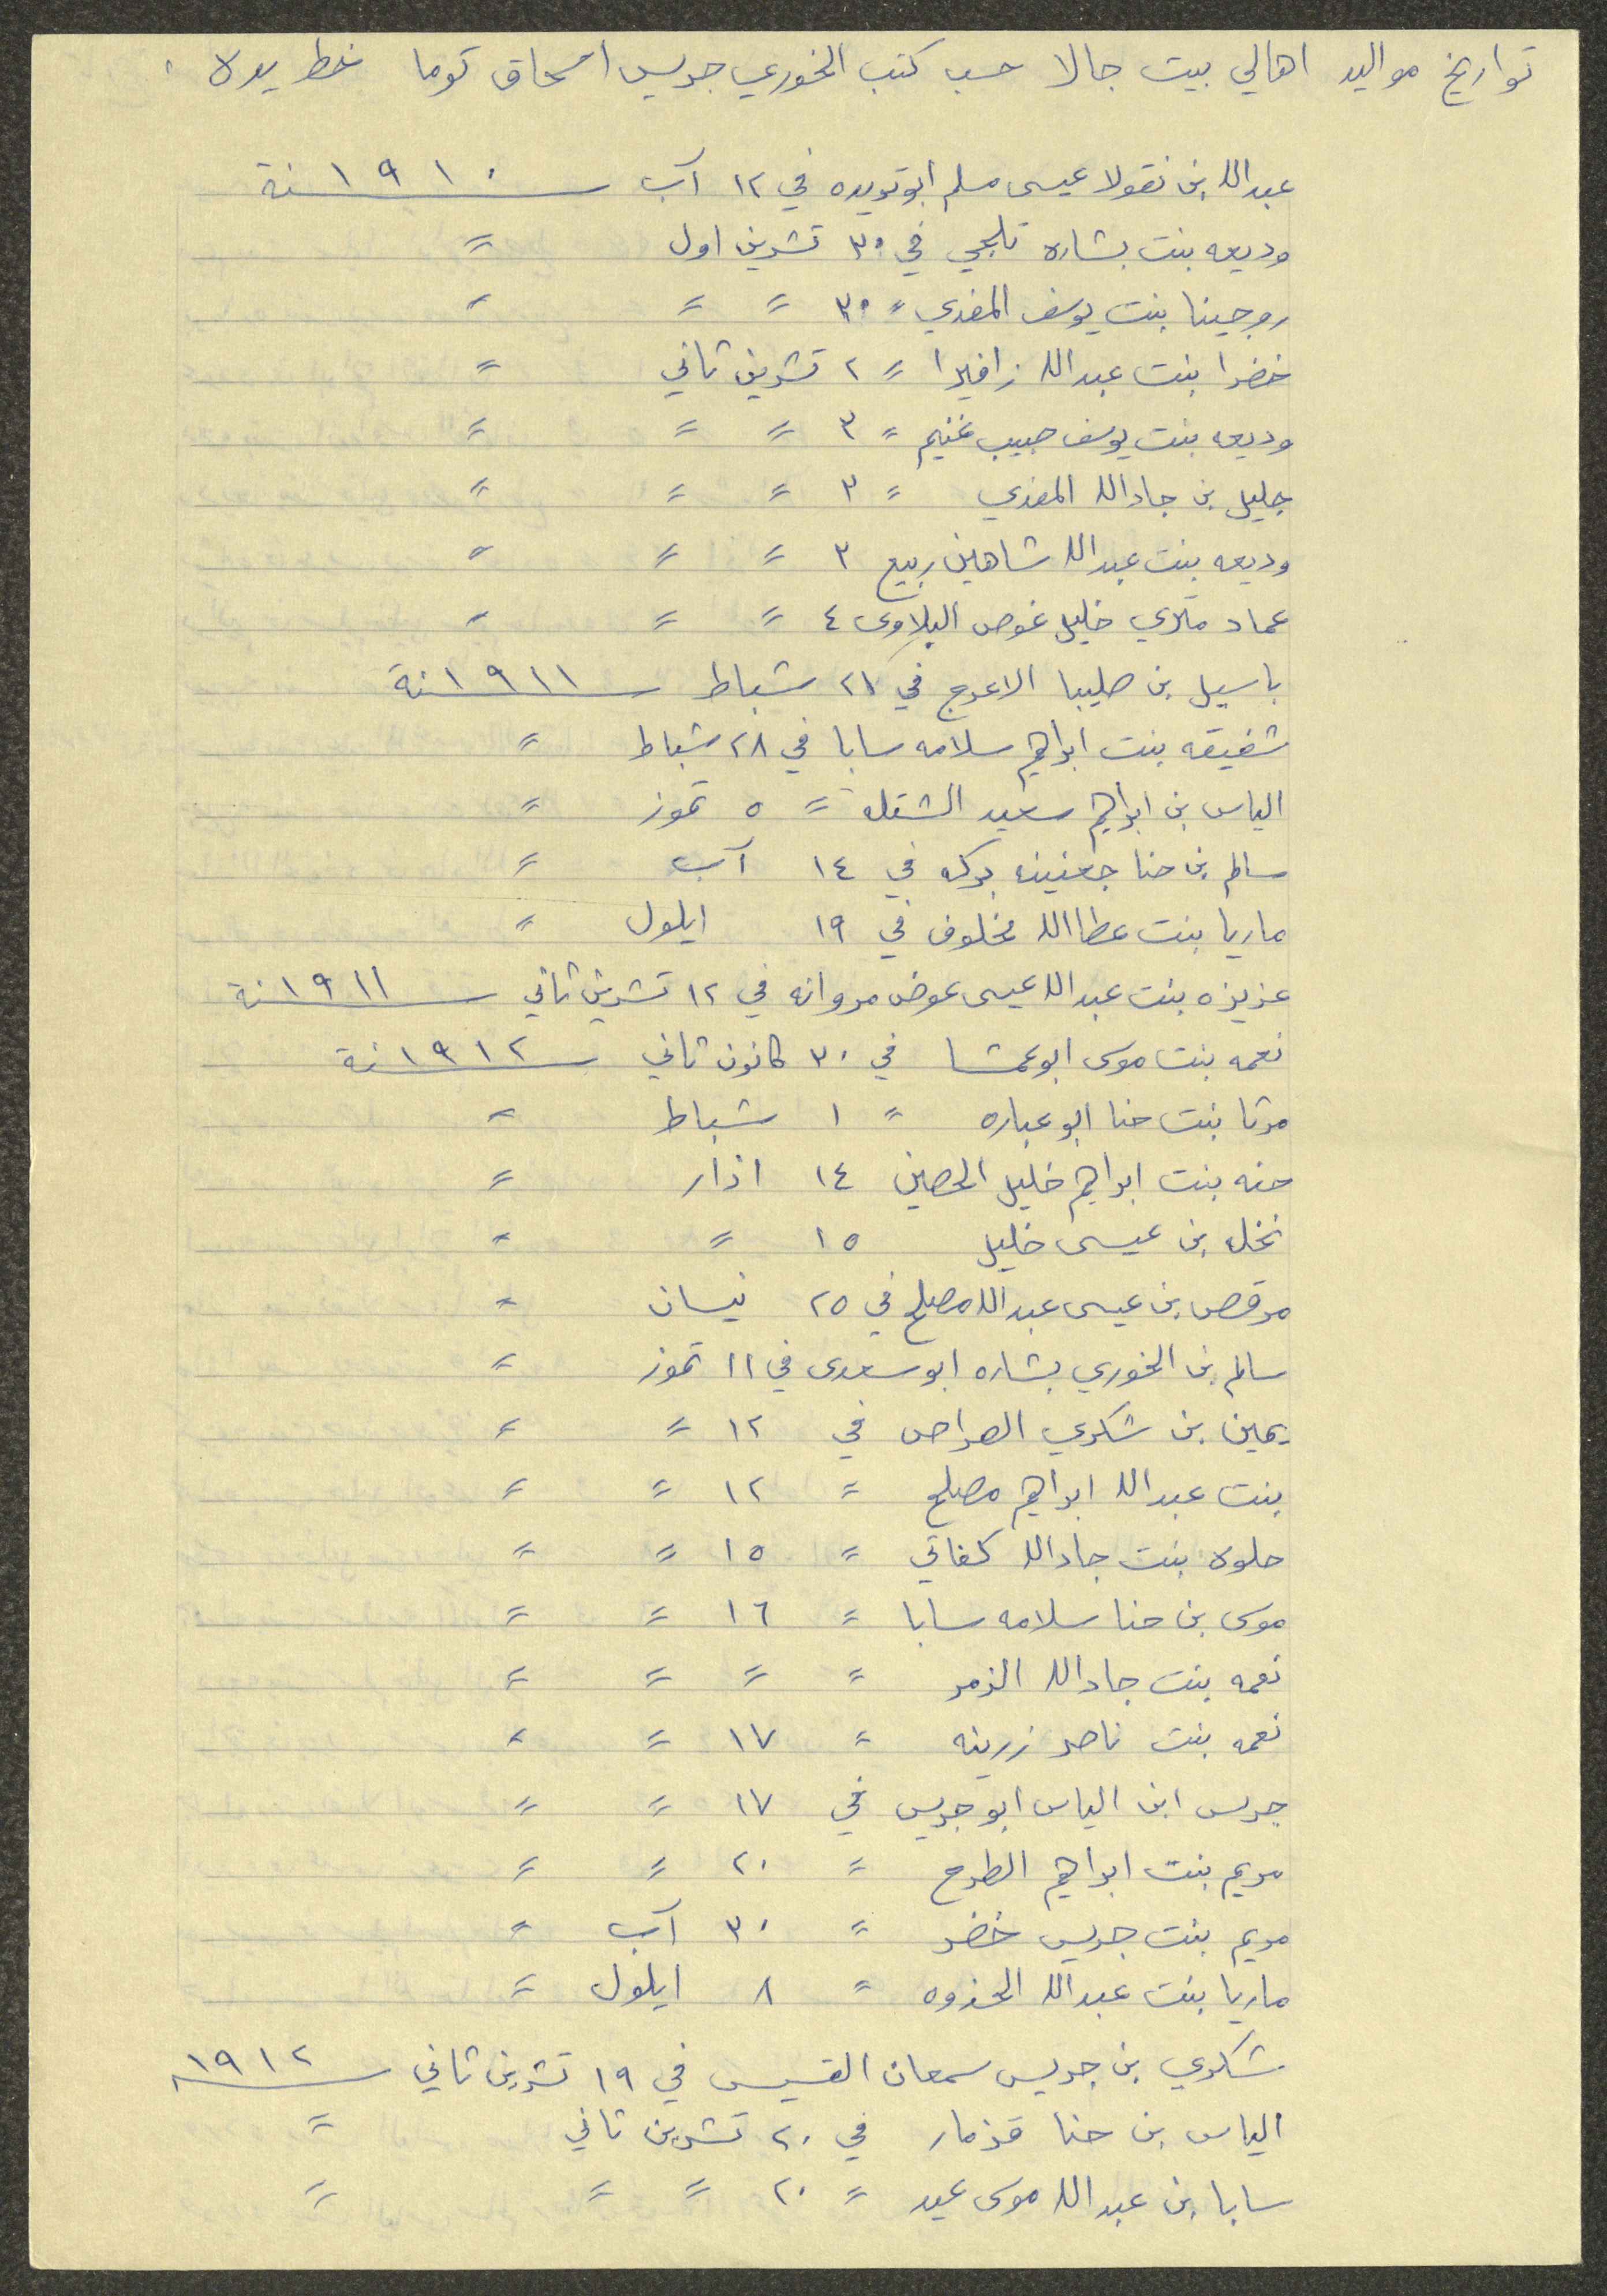 تواريخ مواليد اهالي بيت جالا حسب كتب الخوري جريس اسحاق توما بخط يده .
عبدالله بن نقولا عيسى مسلم ابو تويده في ١٢ آب سنة ١٩١٠
وديعه بنت بشاره تلجي في ٣٠ تشرين اول "
روجينا بنت يوسف المغدي " ٣٠ " " "
خضرا بنت عبدالله زافيرا " ٢ تشرين تاني "
وديعه بنت يوسف حبيب غنيم " ٣ " " "
جليل بن جادالله المغدي " ٣ " " "
وديعه بنت عبدالله شاهين ربيع ٣ " " "
عماد متري خليل غوص البلاوى ٤ " " "
باسيل بن صليبا الاعرج في ٢١ شباط سنة ١٩١١
شفيقه بنت ابراهيم سلامه سابا في ٢٨ شباط "
الياس بن ابراهيم سعيد الشتله " ٥ تموز "
سالم بن حنا جعنينه بركه في ١٤ آب "
ماريا بنت عطاالله مخلوف في ١٩ ايلول "
عزيزه بنت عبدالله عيسى عوض مروانه في ١٢ تشرين تاني سنة ١٩١١
نعمه بنت موسى ابو عمشا في ٣٠ كانون تاني سنة ١٩١٢
مرتا بنت حنا ابو عباره " ١ شباط "
حنه بنت ابراهيم خليل الحصين ١٤ اذار "
نخله بن عيسى خليل ١٥ " "
مرقص بن عيسى عبدالله مصلح في ٢٥ نيسان "
سالم بن الخوري بشاره ابو سعدى في ١١ تموز "
يمين بن شكري الهراص في ١٢ " "
بنت عبدالله ابراهيم مصلح " ١٢ " "
حلوه بنت جادالله كفاتي " ١٥ " "
موسى بن حنا سلامه سابا " ١٦ " "
نعمه بنت جادالله الزمر " " " "
نعمه بنت ناصر زرينه " ١٧ " "
جريس ابن الياس ابو جريس في ١٧ " "
مريم بنت ابراهيم الطرح " ٢٠ " "
مريم بنت جريس خضر " ٣٠ آب "
ماريا بنت عبدالله الحذوه " ٨ ايلول "
شكري بن جريس سمعان القسيس في ١٩ تشرين تاني سنة ١٩١٢
الياس بن حنا قزمار في ٢٠ تشرين تاني "
سابا بن عبدالله موسى عيد " ٢٠ " " "